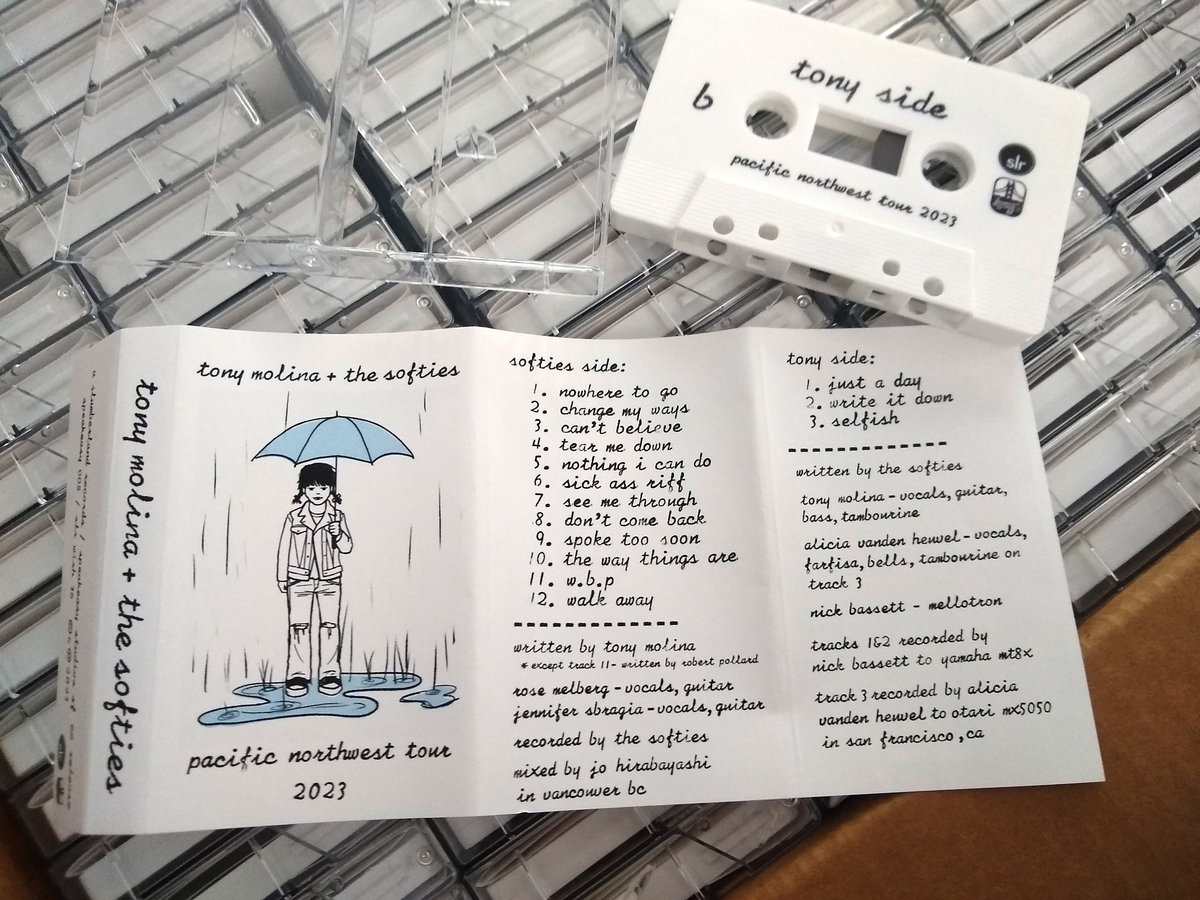 tony side
b
pacific northwest tour 2023
slr
tony molina + the softies
tony molina + the softies
pacific northwest tour
2023
softies side:
1. nowhere to go
2. change my ways
3. can't believe
4. tear me down
5. nothing i can do
6. sick ass riff
7. see me through
8. don't come back
9. spoke too soon
10. the way things are
11. w.b.p
12. walk away
written by tony molina
* except track 11- written by robert pollard
rose melberg - vocals, guitar
jennifer sbragia - vocals, guitar
recorded by the softies
mixed by jo hirabayashi
in vancouver bc
tony side:
1. just a day
2. write it down
3. selfish
written by the softies
tony molina - vocals, guitar,
bass, tambourine
alicia vanden heuvel - vocals,
farfisa, bells, tambourine on
track 3
nick bassett - mellotron
tracks 1&2 recorded by
nick bassett to yamaha mt8x
track 3 recorded by alicia
vanden heuvel to otari mx5050
in san francisco, ca
a slumberland records / speakeasy studios sf
speakeasy 005 / slr